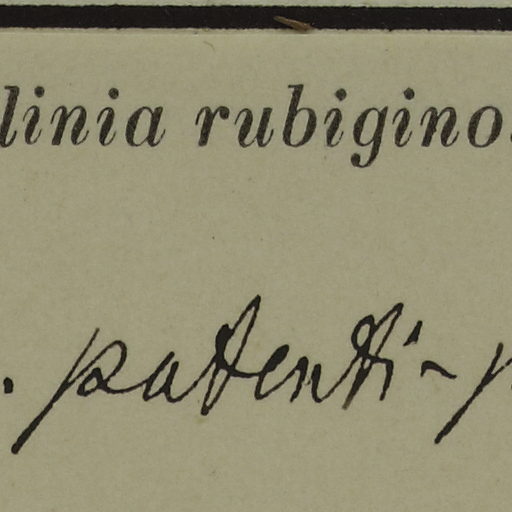 linia rubigino
. patenti-p